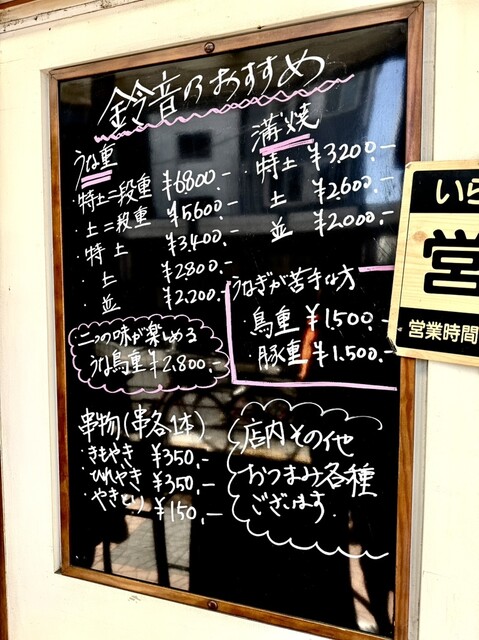 鈴音のおすすめ
うな重
・特上二段重 ¥6800.-
・上二段重 ¥5600.-
・特上 ¥3,400.-
・上 ¥2.800.-
・並 ¥2.200.-
二つの味が楽しめる
うな鳥重 ¥2.800.-
串物(串各1本)
・きもやき ¥350.-
・ひれやき ¥350.-
・やきとり ¥150.-
蒲焼
・特上 ¥3200.-
・上 ¥2.600.-
・並 ¥2.000.-
うなぎが苦手な方
・鳥重 ¥1.500.-
・豚重 ¥1.500.-
店内その他
おつまみ各種
ございます.
いら
営
営業時間